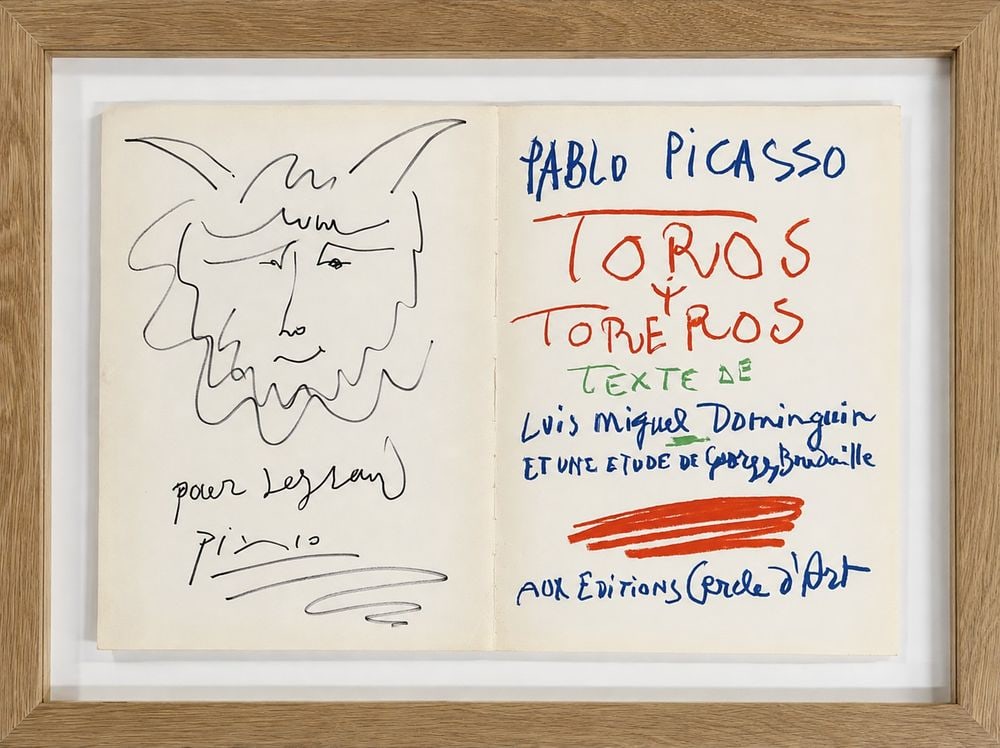 pour
Picasso
PABLO PICASSO
TOROS
Y
TOREROS
TEXTE DE
Luis Miguel Dominguin
ET UNE ETUDE DE Georges Boudaille
AUX EDITIONS Cercle d'Art